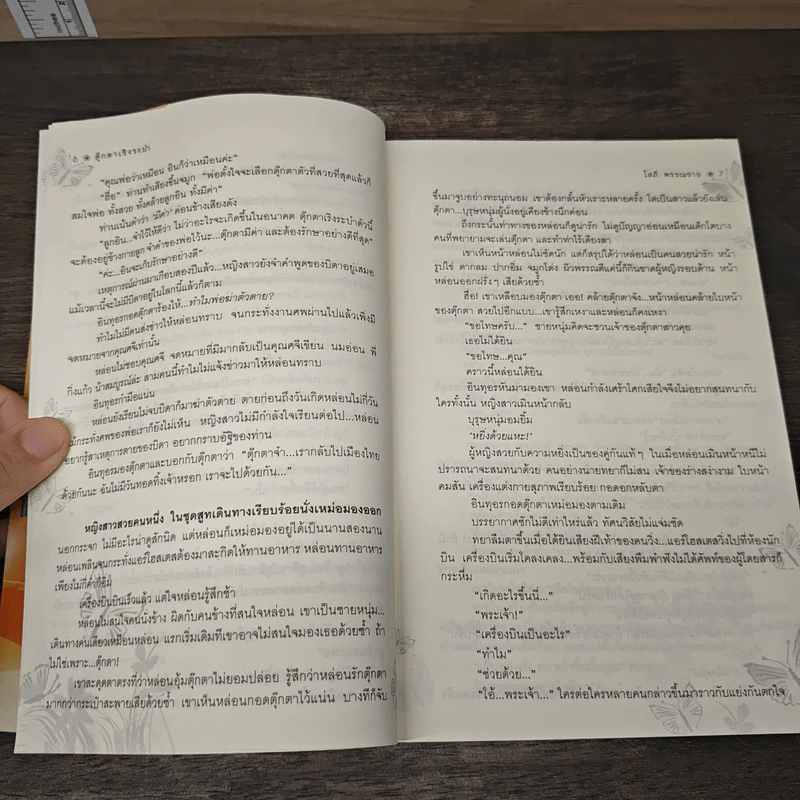 6 ❀ ตุ๊กตาเริงระบำ
"คุณพ่อว่าเหมือน อินก็ว่าเหมือนค่ะ"
"ฮื่อ" ท่านทำเสียงขึ้นจมูก "พ่อตั้งใจจะเลือกตุ๊กตาตัวที่สวยที่สุดแล้วก็
สมใจพ่อ ทั้งสวย ทั้งคล้ายลูกอิน ทั้งมีค่า"
ท่านเน้นคำว่า 'มีค่า' ค่อนข้างเสียงดัง
"ลูกอิน...จำไว้ให้ดีว่า ไม่ว่าอะไรจะเกิดขึ้นในอนาคต ตุ๊กตาเริงระบำตัวนี้
จะต้องอยู่ข้างกายลูก จำคำของพ่อไว้นะ...ตุ๊กตามีค่า และต้องรักษาอย่างดีที่สุด"
"ค่ะ...อินจะเก็บรักษาอย่างดี"
เหตุการณ์ผ่านมาเกือบสองปีแล้ว...หญิงสาวยังจำคำพูดของบิดาอยู่เสมอ
แม้เวลานี้จะไม่มีบิดาอยู่ในโลกนี้แล้วก็ตาม
อินทุอรกอดตุ๊กตาร้องไห้...ทำไมพ่อฆ่าตัวตาย?
ทำไมไม่มีคนส่งข่าวให้หล่อนทราบ จนกระทั่งงานศพผ่านไปแล้วเพิ่งมี
จดหมายจากคุณศจีเท่านั้น
หล่อนไม่ชอบคุณศจี จดหมายที่มีมากลับเป็นคุณศจีเขียน นมอ่อน พี่
กิ่งแก้ว น้าสมบูรณ์ล่ะ สามคนนี้ทำไมไม่แจ้งข่าวมาให้หล่อนทราบ
อินทุอรกำมือแน่น
หล่อนยังเรียนไม่จบบิดาก็มาฆ่าตัวตาย ตายก่อนถึงวันเกิดหล่อนไม่กี่วัน
แม้กระทั่งศพของพ่อเราก็ยังไม่เห็น หญิงสาวไม่มีกำลังใจเรียนต่อไป...หล่อน
อยากรู้สาเหตุการตายของบิดา อยากกราบอัฐิของท่าน
อินทุอรมองตุ๊กตาและบอกกับตุ๊กตาว่า "ตุ๊กตาจ๋า...เรากลับไปเมืองไทย
ด้วยกันนะ ฉันไม่มีวันทอดทิ้งเจ้าหรอก เราจะไปด้วยกัน..."
หญิงสาวสวยคนหนึ่ง ในชุดสูทเดินทางเรียบร้อยนั่งเหม่อมองออก
นอกกระจก ไม่มีอะไรน่าดูสักนิด แต่หล่อนก็เหม่อมองอยู่ได้เป็นนานสองนาน
หล่อนเพลินจนกระทั่งแอร์โฮสเตสต้องมาสะกิดให้ทานอาหาร หล่อนทานอาหาร
เพียงไม่กี่คำก็อิ่ม
เครื่องบินบินเร็วแล้ว แต่หล่อนรู้สึกช้า
หล่อนไม่สนใจคนนั่งข้าง ผิดกับคนข้างที่สนใจหล่อน เขาเป็นชายหนุ่ม...
เดินทางคนเดียวเหมือนหล่อน แรกเริ่มเดิมทีเขาอาจไม่สนใจมองเธอด้วยซ้ำ ถ้า
ไม่ใช่เพราะ...ตุ๊กตา!
เขาสะดุดตาตรงที่ว่าหล่อนอุ้มตุ๊กตาไม่ยอมปล่อย รู้สึกว่าหล่อนรักตุ๊กตา
มากกว่ากระเป๋าสะพายเสียด้วยซ้ำ เขาเห็นหล่อนกอดตุ๊กตาไว้แน่น บางทีก็จับ
โสภี พรรณราย ❀ 7
ขึ้นมาจูบอย่างทะนุถนอม เขาต้องกลั้นหัวเราะหลายครั้ง โตเป็นสาวแล้วยังเล่น
ตุ๊กตา...บุรุษหนุ่มผู้นั่งอยู่เคียงข้างนึกค่อน
ถึงกระนั้นท่าทางของหล่อนก็ดูน่ารัก ไม่ดูปัญญาอ่อนเหมือนเด็กโตบาง
คนที่พยายามจะเล่นตุ๊กตา และทำท่าไร้เดียงสา
เขาเห็นหน้าหล่อนไม่ชัดนัก แต่ก็สรุปได้ว่าหล่อนเป็นคนสวยน่ารัก หน้า
รูปไข่ ตากลม ปากอิ่ม จมูกโด่ง ผิวพรรณดีแค่นี้ก็กินขาดผู้หญิงรอบด้าน หน้า
หล่อนออกฝรั่งๆ เสียด้วยซ้ำ
ฮื่อ! เขาเหลือบมองตุ๊กตา เออ! คล้ายตุ๊กตาจัง...หน้าหล่อนคล้ายใบหน้า
ของตุ๊กตา สวยไปอีกแบบ...เขารู้สึกเหงาและหล่อนก็คงเหงา
"ขอโทษครับ..." ชายหนุ่มคิดจะชวนเจ้าของตุ๊กตาสาวคุย
เธอไม่ได้ยิน
"ขอโทษ...คุณ"
คราวนี้หล่อนได้ยิน
อินทุอรหันมามองเขา หล่อนกำลังเศร้าโศกเสียใจจึงไม่อยากสนทนากับ
ใครทั้งนั้น หญิงสาวเมินหน้ากลับ
บุรุษหนุ่มอมยิ้ม
'หยิ่งด้วยแหะ!'
ผู้หญิงสวยกับความหยิ่งของเป็นคู่กันแท้ๆ ในเมื่อหล่อนเมินหน้าหนีไม่
ปรารถนาจะสนทนาด้วย คนอย่างนายทยาก็ไม่สน เจ้าของร่างสง่างาม ใบหน้า
คมสัน เครื่องแต่งกายสุภาพเรียบร้อย กอดอกหลับตา
อินทุอรกอดตุ๊กตาเหม่อมองตามเดิม
บรรยากาศชักไม่ดีเท่าไหร่แล้ว ทัศนวิสัยไม่แจ่มชัด
ทยาลืมตาขึ้นเมื่อได้ยินเสียงฝีเท้าของคนวิ่ง...แอร์โฮสเตสวิ่งไปที่ห้องนัก
บิน เครื่องบินเริ่มโคลงเคลง...พร้อมกับเสียงพึมพำฟังไม่ได้ศัพท์ของผู้โดยสารก็
กระหึ่ม
"เกิดอะไรขึ้นนี่..."
"พระเจ้า!"
"เครื่องบินเป็นอะไร"
"ทำไม"
"ช่วยด้วย..."
"โอ้...พระเจ้า..." ใครต่อใครหลายคนกล่าวขึ้นมาราวกับแย่งกันตกใจ